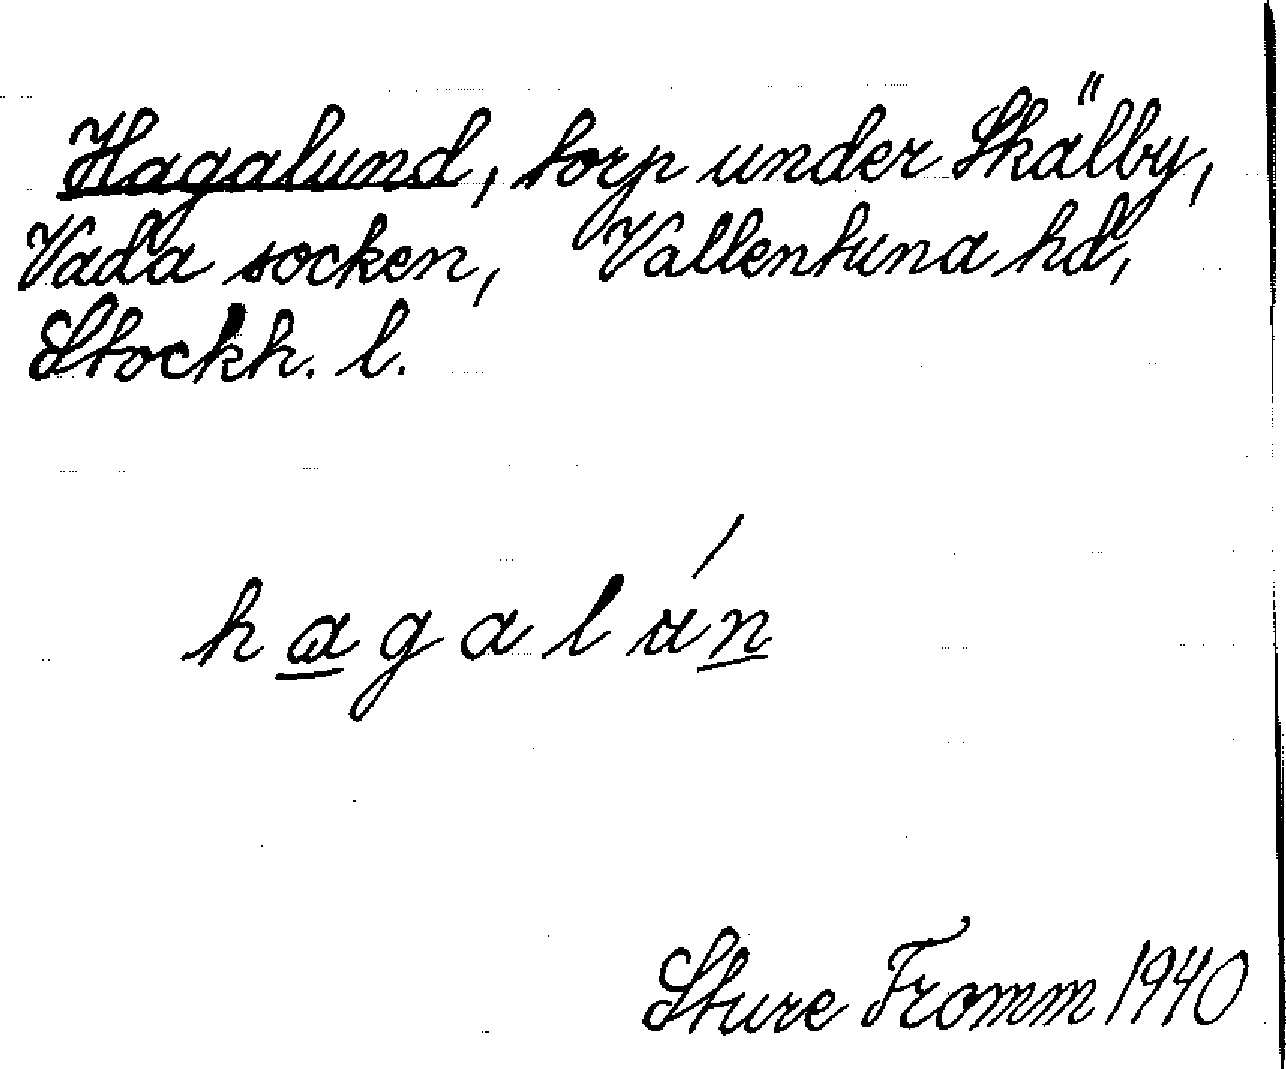 Hagalund, torp under Skälby,
Vada socken, Vallentuna hd,
Stockh. l.
hagalún
Sture Fromm 1940